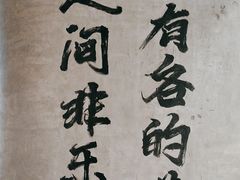 有各的
人间非乐